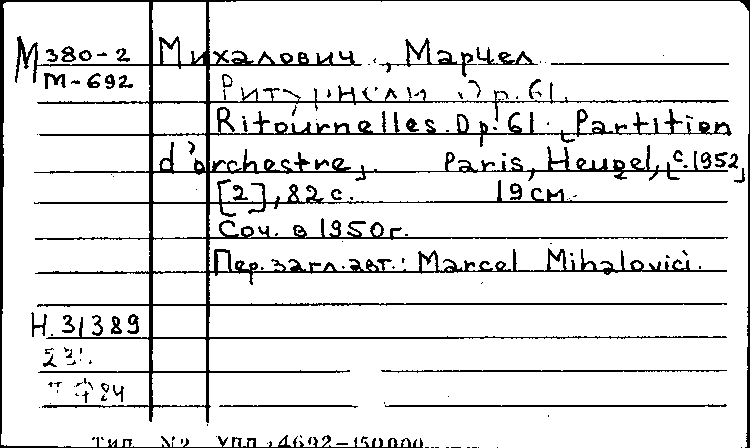 М 380-2 Михалович, Марцел
М-692
Ритурнели Op.61.
Ritournelles. Op. 61. [Partition
d'orchestre]. Paris, Heugel, [c.1952]
[2], 82 с. 19 см.
Соч. в 1950г.
Пер. загл. авт.: Marcel Mihalovici.
Н. 31389
84
Тип. №2 Упл. 4692-150000